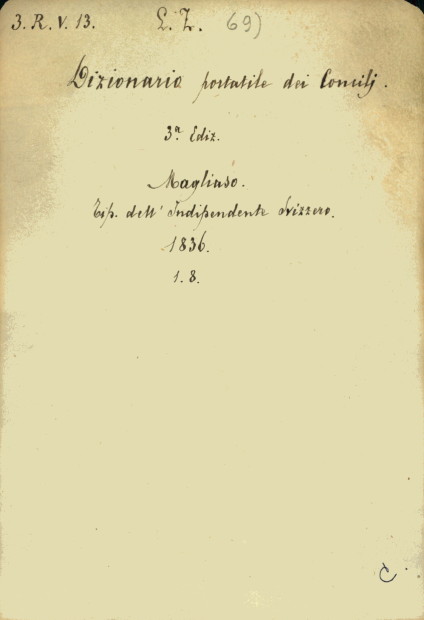 3. R. V. 13. L. Z. 69)
Dizionario portatile dei Concilj.
3ª. Ediz.
Magliaso.
Tip. dell' Indipendente Svizzero.
1836.
1. 8.
C